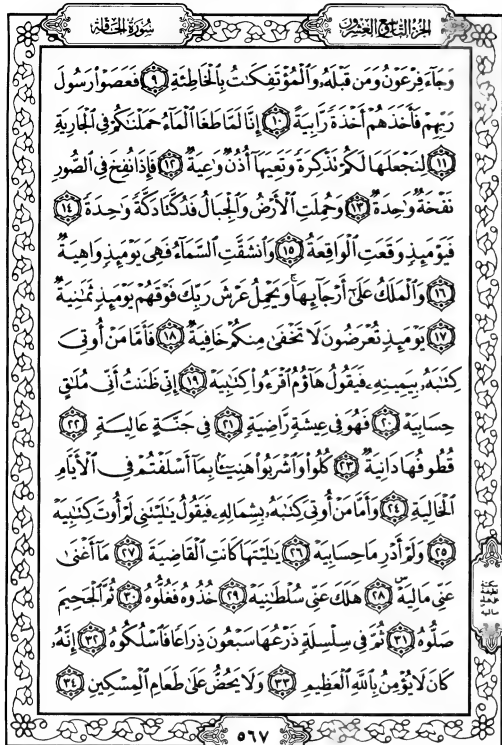 الجزء التاسع والعشرون
سورة الحاقة
وَجَآءَ فِرْعَوْنُ وَمَن قَبْلَهُۥ وَٱلْمُؤْتَفِكَـٰتُ بِٱلْخَاطِئَةِ ٩ فَعَصَوْا۟ رَسُولَ
رَبِّهِمْ فَأَخَذَهُمْ أَخْذَةً رَّابِيَةً ١٠ إِنَّا لَمَّا طَغَا ٱلْمَآءُ حَمَلْنَـٰكُمْ فِى ٱلْجَارِيَةِ
١١ لِنَجْعَلَهَا لَكُمْ تَذْكِرَةً وَتَعِيَهَآ أُذُنٌ وَٰعِيَةٌ ١٢ فَإِذَا نُفِخَ فِى ٱلصُّورِ
نَفْخَةٌ وَٰحِدَةٌ ١٣ وَحُمِلَتِ ٱلْأَرْضُ وَٱلْجِبَالُ فَدُكَّتَا دَكَّةً وَٰحِدَةً ١٤
فَيَوْمَئِذٍ وَقَعَتِ ٱلْوَاقِعَةُ ١٥ وَٱنشَقَّتِ ٱلسَّمَآءُ فَهِىَ يَوْمَئِذٍ وَاهِيَةٌ
١٦ وَٱلْمَلَكُ عَلَىٰٓ أَرْجَآئِهَا ۚ وَيَحْمِلُ عَرْشَ رَبِّكَ فَوْقَهُمْ يَوْمَئِذٍ ثَمَـٰنِيَةٌ
١٧ يَوْمَئِذٍ تُعْرَضُونَ لَا تَخْفَىٰ مِنكُمْ خَافِيَةٌ ١٨ فَأَمَّا مَنْ أُوتِىَ
كِتَـٰبَهُۥ بِيَمِينِهِۦ فَيَقُولُ هَآؤُمُ ٱقْرَءُوا۟ كِتَـٰبِيَهْ ١٩ إِنِّى ظَنَنتُ أَنِّى مُلَـٰقٍ
حِسَابِيَهْ ٢٠ فَهُوَ فِى عِيشَةٍ رَّاضِيَةٍ ٢١ فِى جَنَّةٍ عَالِيَةٍ ٢٢
قُطُوفُهَا دَانِيَةٌ ٢٣ كُلُوا۟ وَٱشْرَبُوا۟ هَنِيٓـًٔۢا بِمَآ أَسْلَفْتُمْ فِى ٱلْأَيَّامِ
ٱلْخَالِيَةِ ٢٤ وَأَمَّا مَنْ أُوتِىَ كِتَـٰبَهُۥ بِشِمَالِهِۦ فَيَقُولُ يَـٰلَيْتَنِى لَمْ أُوتَ كِتَـٰبِيَهْ
٢٥ وَلَمْ أَدْرِ مَا حِسَابِيَهْ ٢٦ يَـٰلَيْتَهَا كَانَتِ ٱلْقَاضِيَةَ ٢٧ مَآ أَغْنَىٰ
عَنِّى مَالِيَهْ ۜ ٢٨ هَلَكَ عَنِّى سُلْطَـٰنِيَهْ ٢٩ خُذُوهُ فَغُلُّوهُ ٣٠ ثُمَّ ٱلْجَحِيمَ
صَلُّوهُ ٣١ ثُمَّ فِى سِلْسِلَةٍ ذَرْعُهَا سَبْعُونَ ذِرَاعًا فَٱسْلُكُوهُ ٣٢ إِنَّهُۥ
كَانَ لَا يُؤْمِنُ بِٱللَّهِ ٱلْعَظِيمِ ٣٣ وَلَا يَحُضُّ عَلَىٰ طَعَامِ ٱلْمِسْكِينِ ٣٤
٥٦٧